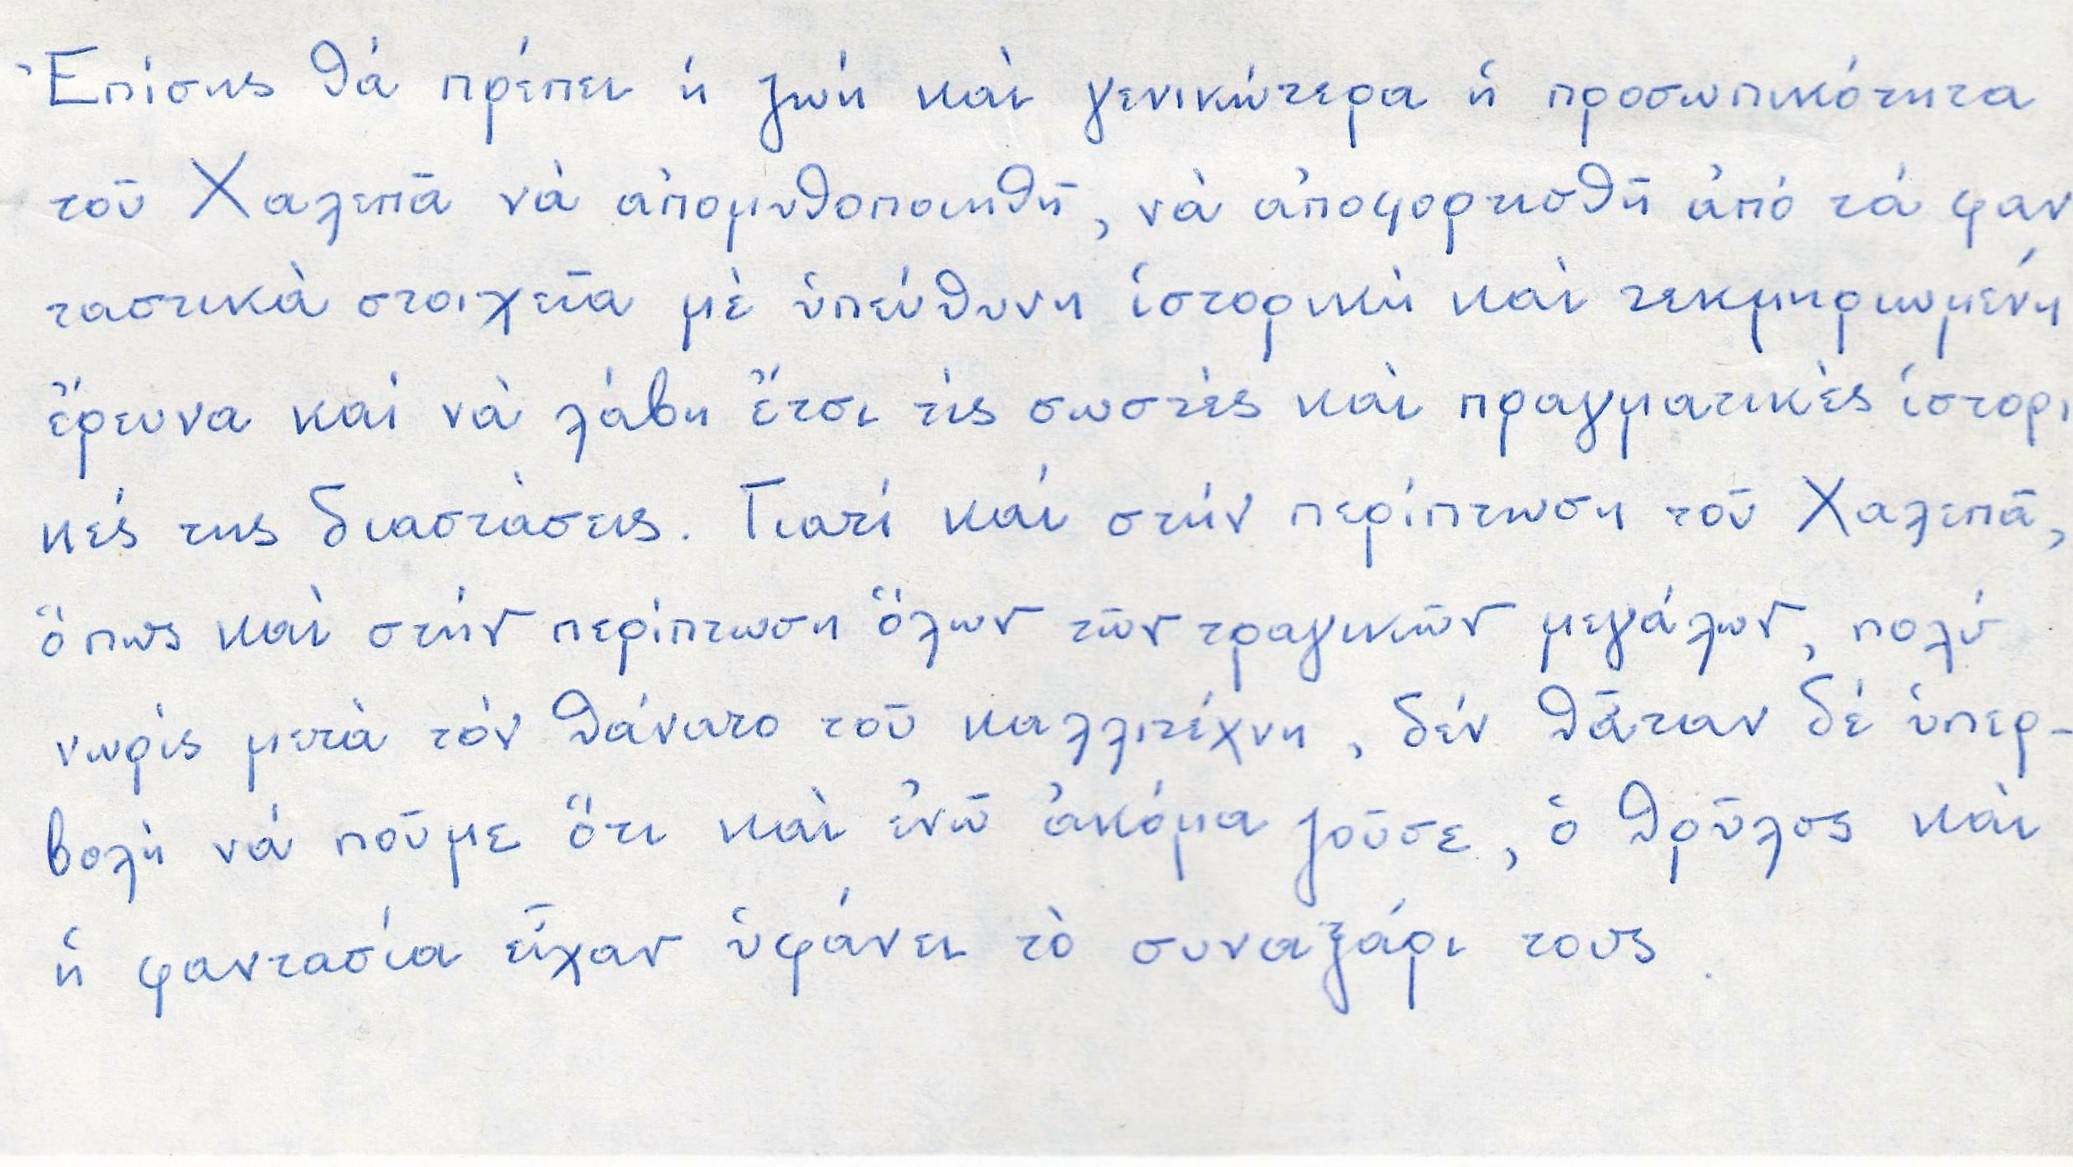 Ἐπίσης θά πρέπει ἡ ζωή καὶ γενικώτερα ἡ προσωπικότητα
τοῦ Χαλεπᾶ νὰ ἀπομυθοποιηθῆ, νὰ ἀποφορτισθῆ ἀπό τά φαν
ταστικὰ στοιχεῖα μὲ ὑπεύθυνη ἱστορικὴ καὶ τεκμηριωμένη
ἔρευνα καί νὰ λάβη ἔτσι τὶς σωστὲς καὶ πραγματικὲς ἱστορι
κές της διαστὰσεις. Γιατί καί στήν περίπτωση τοῦ Χαλεπᾶ,
ὅπως καὶ στήν περίπτωση ὅλων τῶν τραγικῶν μεγάλων, πολύ
νωρὶς μετὰ τὸν θάνατο τοῦ καλλιτέχνη, δέν θἆταν δέ ὑπερ-
βολὴ νά ποῦμε ὅτι καὶ ἐνῶ ἀκόμα ζοῦσε, ὁ θρῦλος καὶ
ἡ φαντασία εἶχαν ὑφάνει τὸ συναξάρι τους.